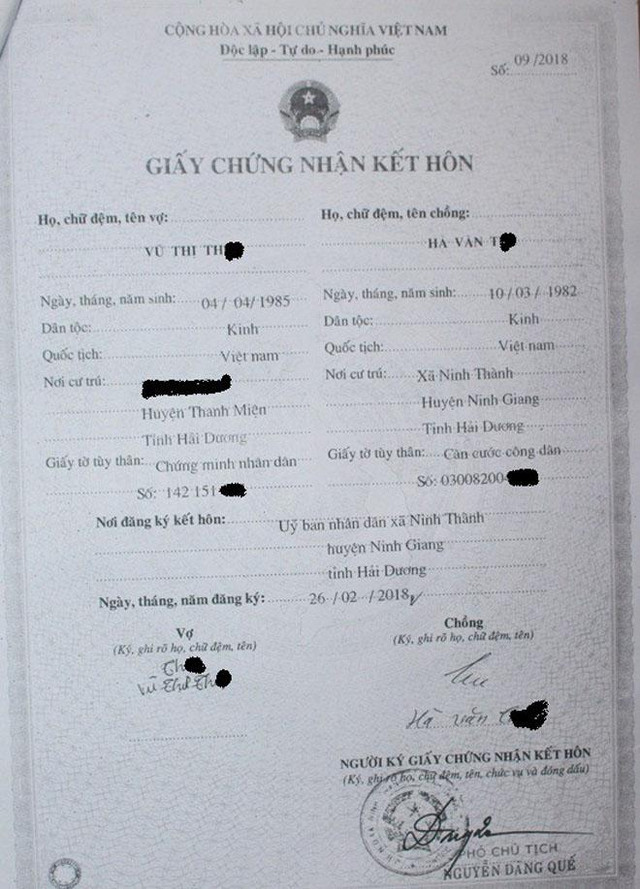 CỘNG HÒA XÃ HỘI CHỦ NGHĨA VIỆT NAM
Độc lập - Tự do - Hạnh phúc
Số: 09/2018
GIẤY CHỨNG NHẬN KẾT HÔN
Họ, chữ đệm, tên vợ:
VŨ THỊ TH
Ngày, tháng, năm sinh: 04/ 04/ 1985
Dân tộc: Kinh
Quốc tịch: Việt nam
Nơi cư trú:
Huyện Thanh Miện
Tỉnh Hải Dương
Giấy tờ tùy thân: Chứng minh nhân dân
Số: 142 151
Họ, chữ đệm, tên chồng:
HÀ VĂN T
Ngày, tháng, năm sinh: 10/ 03/ 1982
Dân tộc: Kinh
Quốc tịch: Việt nam
Nơi cư trú: Xã Ninh Thành
Huyện Ninh Giang
Tỉnh Hải Dương
Giấy tờ tùy thân: Căn cước công dân
Số: 03008200
Nơi đăng ký kết hôn: Uỷ ban nhân dân xã Ninh Thành
huyện Ninh Giang
tỉnh Hải Dương
Ngày, tháng, năm đăng ký: 26 / 02 / 2018
Vợ
(Ký, ghi rõ họ, chữ đệm, tên)
Th
Vũ Thị Th
Chồng
(Ký, ghi rõ họ, chữ đệm, tên)
Hà Văn T
NGƯỜI KÝ GIẤY CHỨNG NHẬN KẾT HÔN
(Ký, ghi rõ họ, chữ đệm, tên, chức vụ và đóng dấu)
PHÓ CHỦ TỊCH
NGUYỄN ĐĂNG QUẾ